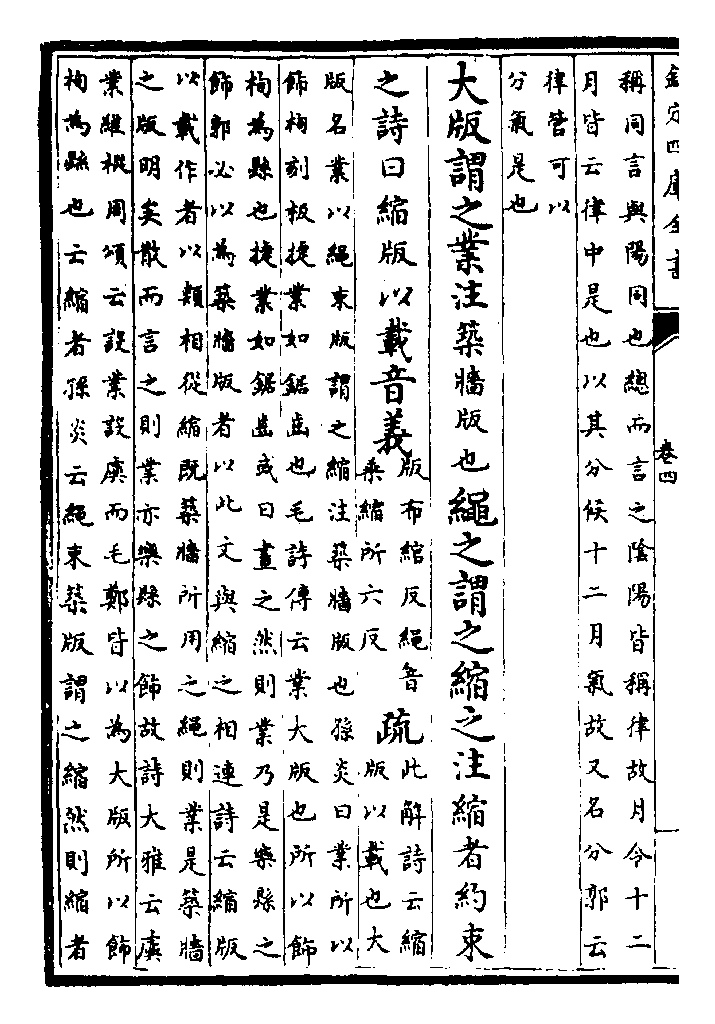 欽定四庫全書
卷四
稱同言與陽同也總而言之陰陽皆稱律故月令十二
月皆云律中是也以其分候十二月氣故又名分郭云
律管可以
分氣是也
大版謂之業注築牆版也繩之謂之縮之注縮者約束
之詩曰縮版以載音義
版布綰反繩音
乘縮所六反
疏
此解詩云縮
版以載也大
版名業以繩束版謂之縮注築牆版也孫炎曰業所以
飾栒刻板捷業如鋸齒也毛詩傳云業大版也所以飾
栒為縣也捷業如鋸齒或曰畫之然則業乃是樂縣之
飾郭必以為築牆版者以此文與縮之相連詩云縮版
以載作者以類相從縮既築牆所用之繩則業是築牆
之版明矣散而言之則業亦樂縣之飾故詩大雅云虡
業維樅周頌云設業設虡而毛鄭皆以為大版所以飾
栒為縣也云縮者孫炎云繩束築版謂之縮然則縮者